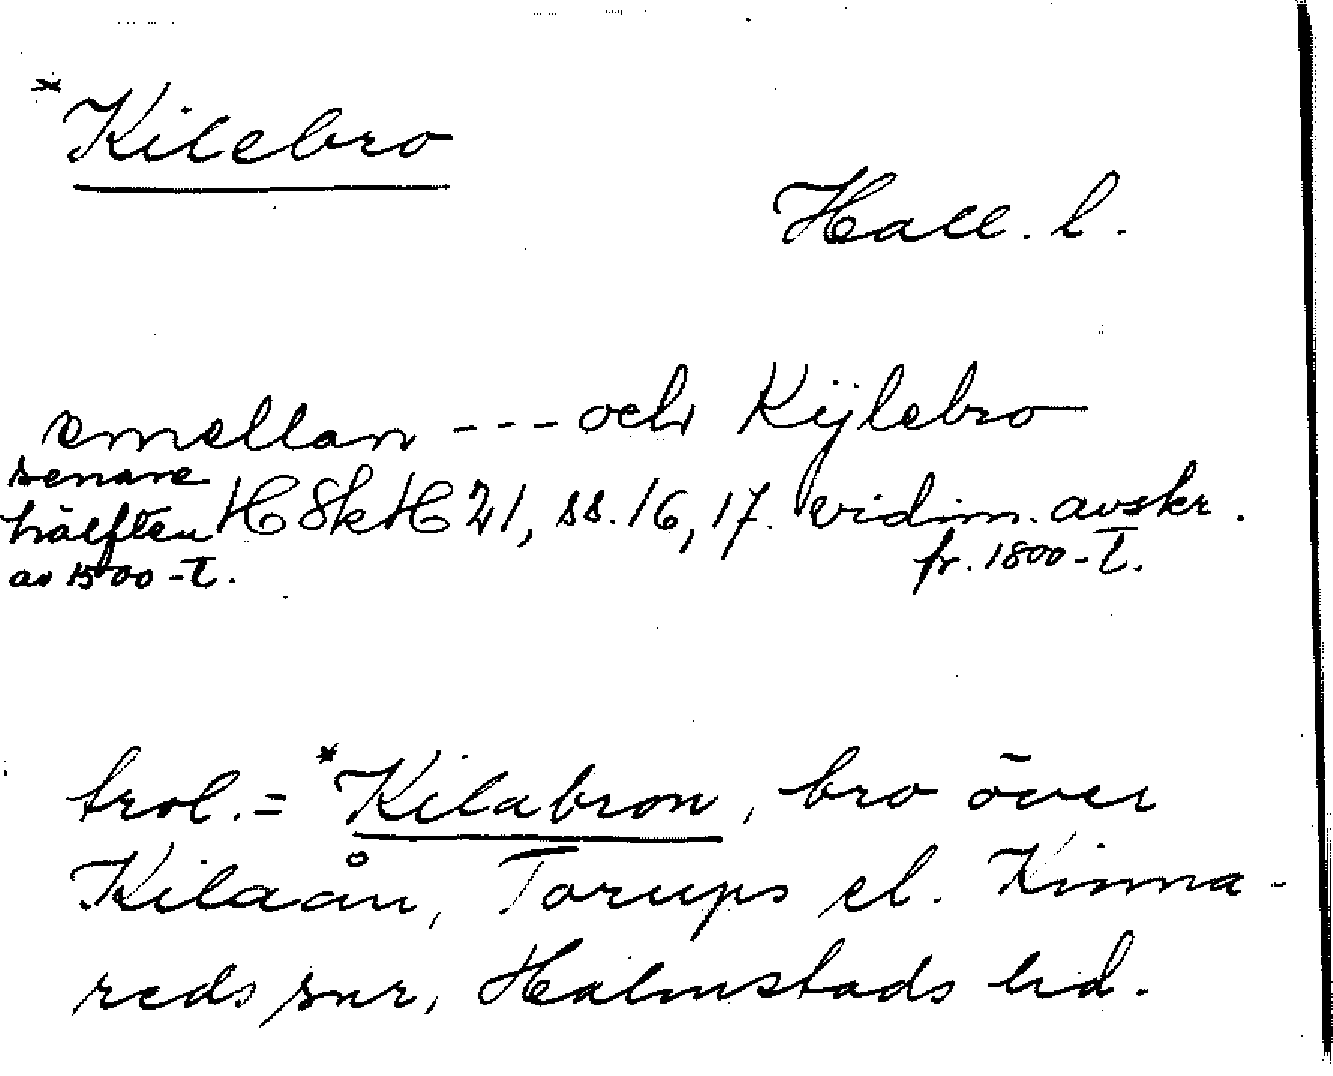 *Kilebro
Hall. l.
emellan --- och Kijlebro
senare
hälften HSkH 21, ss. 16, 17. vidim. avskr.
av 1500-t.
fr. 1800-t.
trol. = *Kilabron, bro över
Kilaån, Torups el. Kinna-
reds snr, Halmstads hd.